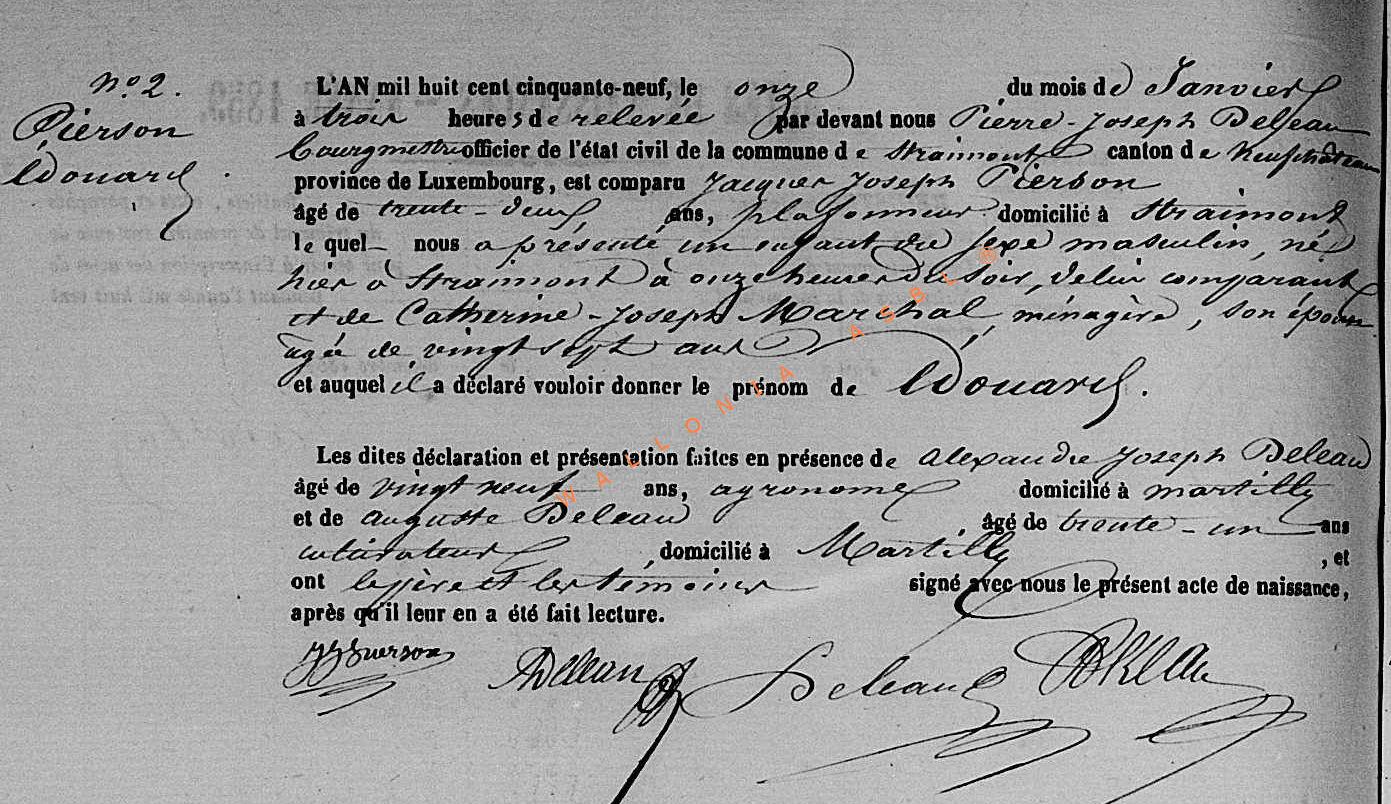 No. 2.
Pierson
Edouard.
L'AN mil huit cent cinquante-neuf, le onze du mois de Janvier
à trois heures de relevée par devant nous Pierre-Joseph Deleau
bourgmestre officier de l'état civil de la commune de Straimont canton de Neufchâteau
province de Luxembourg, est comparu Jacques Joseph Pierson
âgé de trente-deux ans, plafonneur domicilié à Straimont
lequel nous a présenté un enfant du sexe masculin, né
hier à Straimont à onze heures du soir, de lui comparant
et de Catherine-Joseph Marchal, ménagère, son épouse
agée de vingt sept ans
et auquel il a déclaré vouloir donner le prénom de Edouard.
Les dites déclaration et présentation faites en présence de alexandre Joseph Deleau
âgé de vingt neuf ans, agronome domicilié à martilly
et de auguste Deleau, âgé de trente-un ans
cultivateur, domicilié à Martilly, et
ont le père et les témoins signé avec nous le présent acte de naissance,
après qu'il leur en a été fait lecture.
JJPierson ADeleau Deleau
WALLONIA ASBL ®